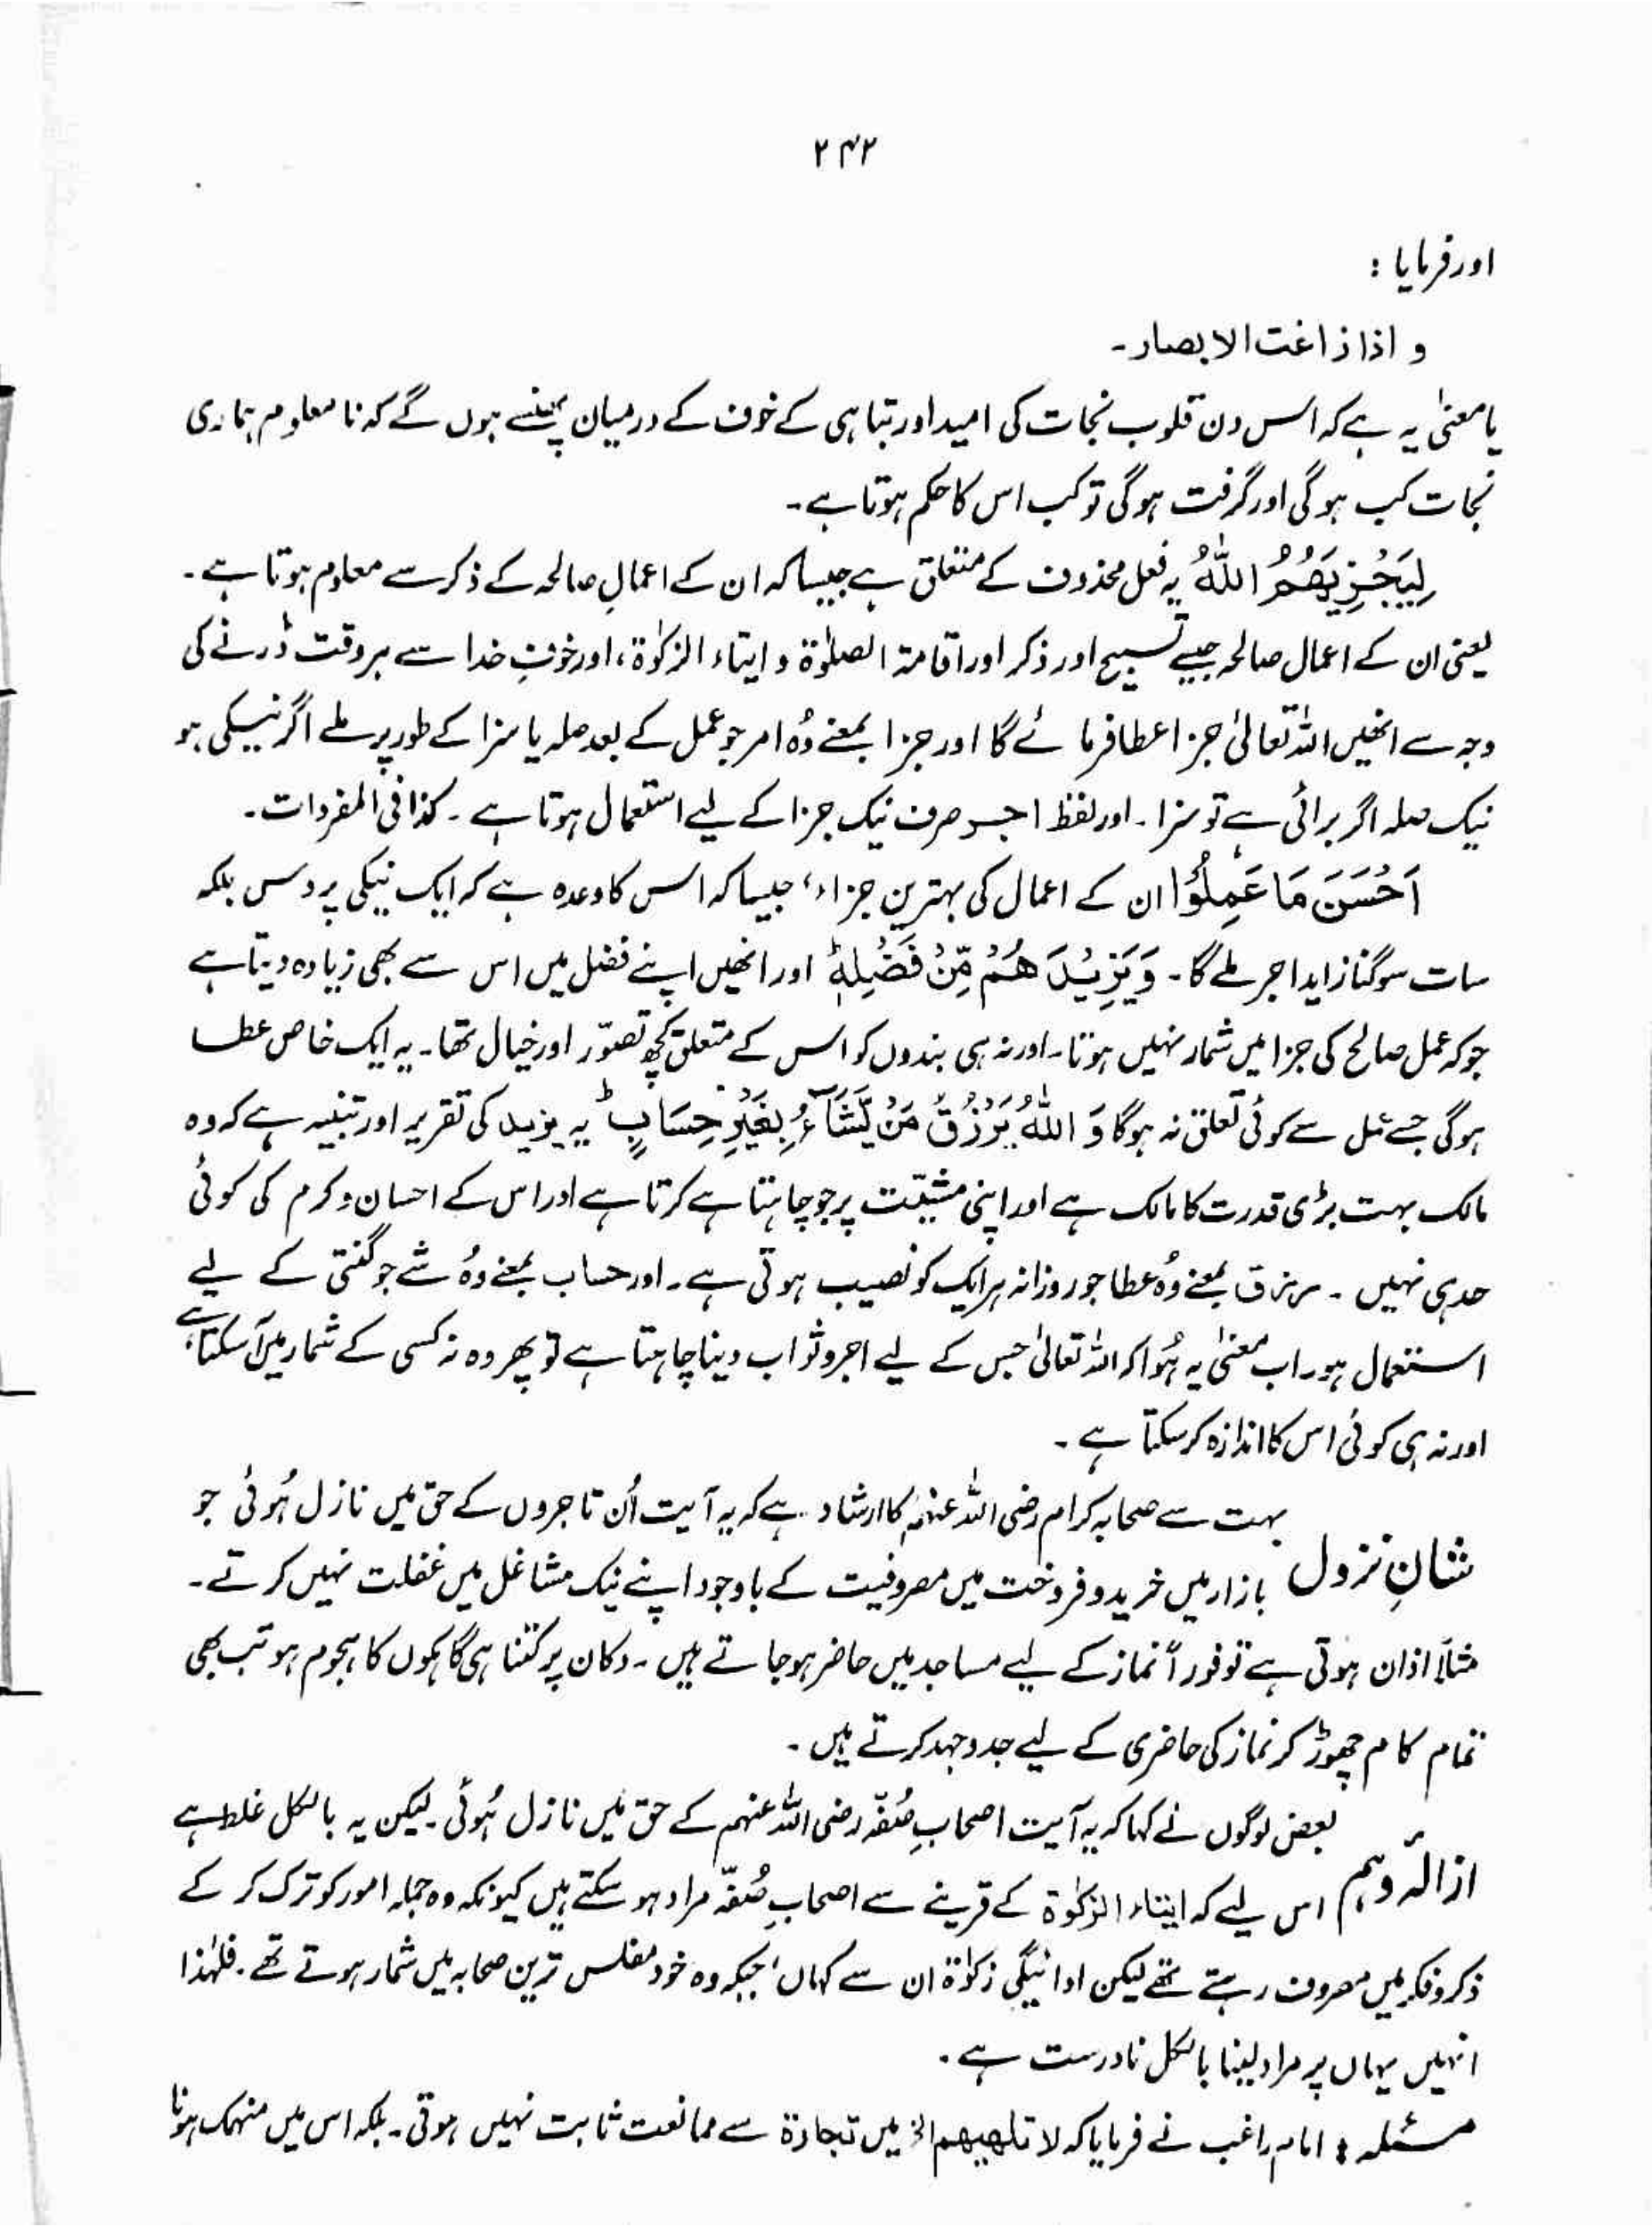 ۲۴۲
اور فرمایا :
و اذا زاغت الابصار۔
یا معنیٰ یہ ہے کہ اس دن قلوب نجات کی امید اور تباہی کے خوف کے درمیان پھنسے ہوں گے کہ نا معلوم ہماری
نجات کب ہو گی اور گرفت ہو گی تو کب اس کا حکم ہوتا ہے۔
لِيَجْزِيَهُمُ اللّٰهُ یہ فعل محذوف کے متعلق ہے جیسا کہ ان کے اعمالِ صالحہ کے ذکر سے معلوم ہوتا ہے۔
یعنی ان کے اعمال صالحہ جیسے تسبیح اور ذکر اور اقامۃ الصلوٰۃ و ایتاء الزکوٰۃ، اور خوفِ خدا سے ہر وقت ڈرنے کی
وجہ سے انھیں اللہ تعالیٰ جزا عطا فرمائے گا اور جزا بمعنے وُہ امر جو عمل کے بعد صلہ یا سزا کے طور پر ملے اگر نیکی ہو
نیک صلہ اگر برائی ہے تو سزا۔ اور لفظ اجر صرف نیک جزا کے لیے استعمال ہوتا ہے۔ کذا فی المفردات۔
اَحْسَنَ مَا عَمِلُوْا ان کے اعمال کی بہترین جزاء، جیسا کہ اس کا وعدہ ہے کہ ایک نیکی پر دس بلکہ
سات سو گنا زاید اجر ملے گا۔ وَيَزِيْدَهُمْ مِّنْ فَضْلِهٖ ؕ اور انھیں اپنے فضل میں اس سے بھی زیادہ دیتا ہے
جو کہ عمل صالح کی جزا میں شمار نہیں ہوتا۔ اور نہ ہی بندوں کو اس کے متعلق کچھ تصوّر اور خیال تھا۔ یہ ایک خاص عطا
ہو گی جسے عمل سے کوئی تعلق نہ ہو گا وَ اللّٰهُ يَرْزُقُ مَنْ يَّشَآءُ بِغَيْرِ حِسَابٍ ؕ یہ یزید کی تقریر اور تنبیہ ہے کہ وہ
مالک بہت بڑی قدرت کا مالک ہے اور اپنی مشیّت پر جو چاہتا ہے کرتا ہے اور اس کے احسان و کرم کی کوئی
حد ہی نہیں۔ رزق بمعنے وُہ عطا جو روزانہ ہر ایک کو نصیب ہوتی ہے۔ اور حساب بمعنے وُہ شے جو گنتی کے لیے
استعمال ہو۔ اب معنیٰ یہ ہُوا کہ اللہ تعالیٰ جس کے لیے اجر و ثواب دینا چاہتا ہے تو پھر وہ نہ کسی کے شمار میں آ سکتا ہے
اور نہ ہی کوئی اس کا اندازہ کر سکتا ہے۔
بہت سے صحابہ کرام رضی اللہ عنہم کا ارشاد ہے کہ یہ آیت اُن تاجروں کے حق میں نازل ہُوئی جو
شانِ نزول بازار میں خرید و فروخت میں مصروفیت کے باوجود اپنے نیک مشاغل میں غفلت نہیں کرتے۔
مثلاً اذان ہوتی ہے تو فوراً نماز کے لیے مساجد میں حاضر ہو جاتے ہیں۔ دکان پر کتنا ہی گاہکوں کا ہجوم ہو تب بھی
تمام کام چھوڑ کر نماز کی حاضری کے لیے جدوجہد کرتے ہیں۔
بعض لوگوں نے کہا کہ یہ آیت اصحابِ صُفّہ رضی اللہ عنہم کے حق میں نازل ہُوئی۔ لیکن یہ بالکل غلط ہے
ازالۂ وہم اس لیے کہ ایتاء الزکوٰۃ کے قرینے سے اصحابِ صُفّہ مراد ہو سکتے ہیں کیونکہ وہ جملہ امور کو ترک کر کے
ذکر و فکر میں مصروف رہتے تھے لیکن ادائیگی زکوٰۃ ان سے کہاں، جبکہ وہ خود مفلس ترین صحابہ میں شمار ہوتے تھے۔ فلہٰذا
انہیں یہاں پر مراد لینا بالکل نادرست ہے۔
مسئلہ : امام راغب نے فرمایا کہ لا تلھیھم الخ میں تجارۃ سے ممانعت ثابت نہیں ہوتی۔ بلکہ اس میں منہمک ہونا